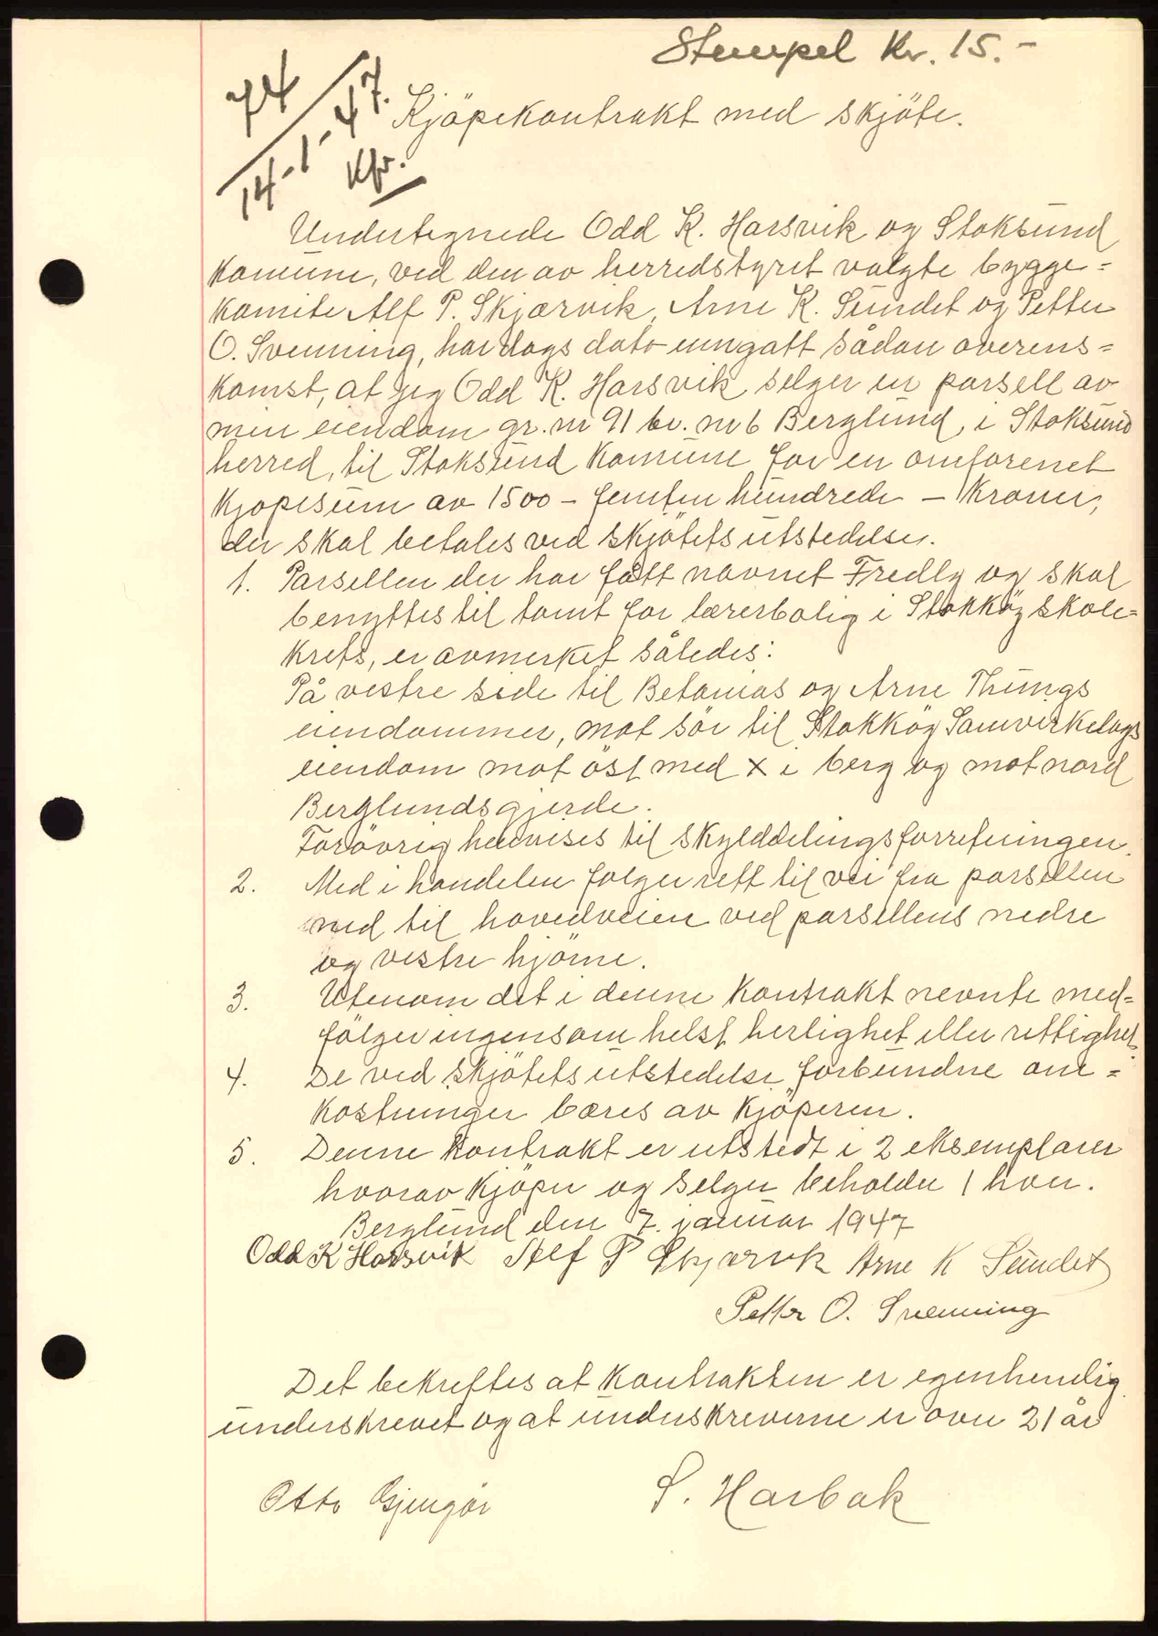 Stempel Kr. 15.-
74
14-1-47.
Kfr.
Kjöpekontrakt med skjöte.
Undertegnede Odd K. Harsvik og Stoksund
Komune, ved den av herredstyret valgte bygge=
Komite Alf P. Skjærvik, Arne K. Sundet og Petter
O. Svenning, har dags dato inngått sådan overens=
komst, at jeg Odd K. Harsvik selger en parsell av
min eiendom gr. nr 91 br. nr 6 Berglund, i Stoksund
herred, til Stoksund Komune for en omforenet
Kjøpesum av 1500 - femten hundrede - Kroner,
der skal betales ved skjötets utstedelse.
1. Parsellen der har fått navnet Fredly og skal
benyttes til tomt for lærerbolig i Stokköy skole=
Krets, er avmerket således:
På vestre side til Betanias og Arne Thungs
eiendommer, mot sör til Stokköy Samvirkelags
eiendom mot öst med x i berg og mot nord
Berglundsgjerde.
Forövrig henvises til skylddelingsforretningen.
2. Med i handelen følger rett til vei fra parsellen
ned til hovedveien ved parsellens nedre
og vestre hjörne.
3. Utenom det i denne Kontrakt nevnte med=
fölger ingensom helst herlighet eller rettighet.
4. De ved skjötets utstedelse forbundne om=
Kostninger bæres av Kjöperen.
5. Denne Kontrakt er utstedt i 2 eksemplarer
hvorav Kjöper og Selger beholder 1 hver.
Berglund den 7. januar 1947
Odd K Harsvik Alf P Skjærvik Arne K Sundet
Petter O. Svenning
Det bekreftes at Kontrakten er egenhendig
underskrevet og at underskriverne er over 21 år
Otto Gjengår S. Harbak